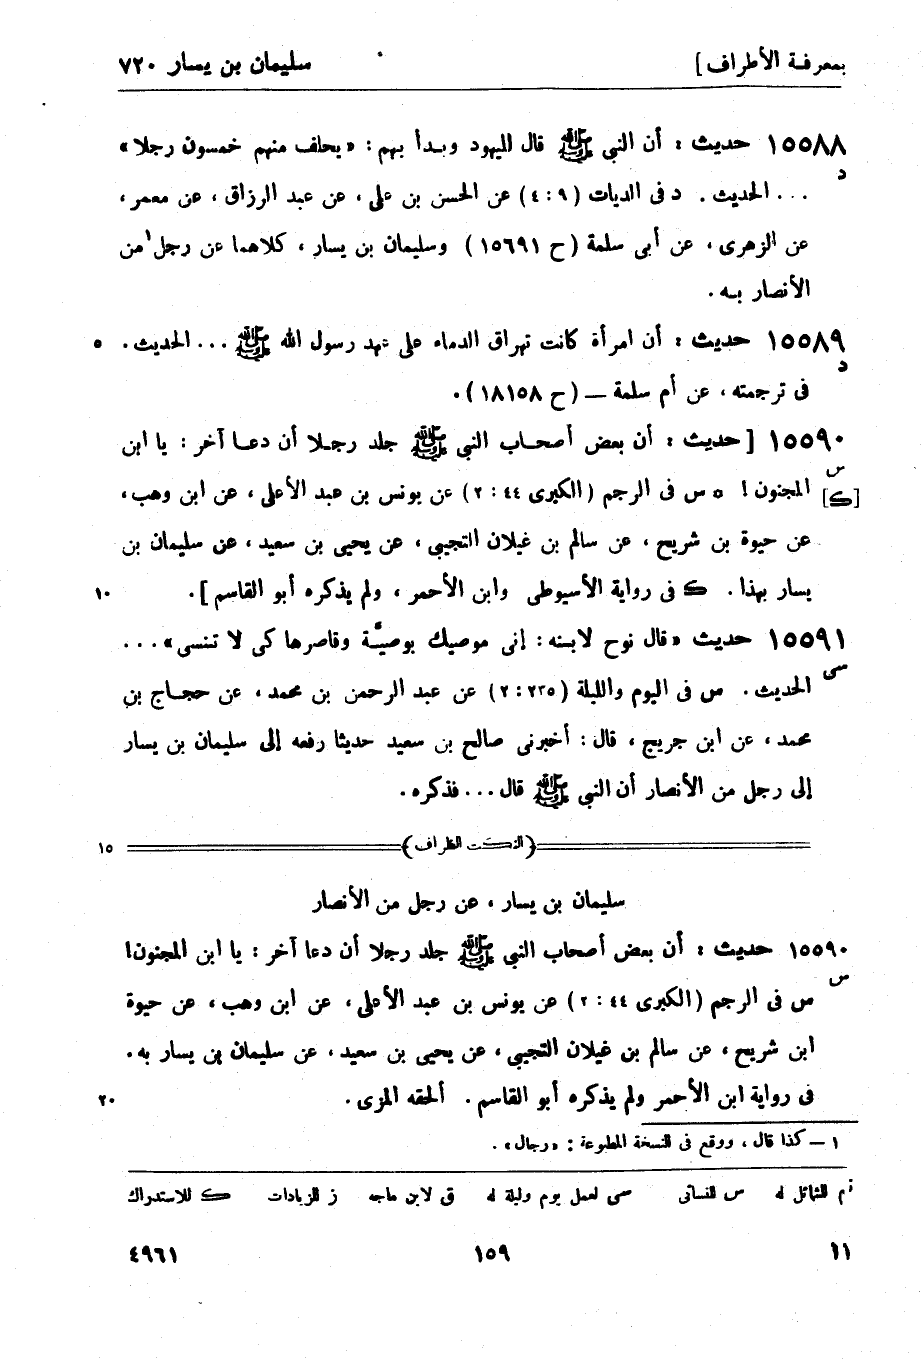 بمعرفة الأطراف ] سليمان بن يسار ٧٢٠
١٥٥٨٨ حديث : أن النبي ﷺ قال لليهود وبدأ بهم : «يحلف منهم خمسون رجلا»
د
... الحديث . د فى الديات (٩ : ٤) عن الحسن بن على ، عن عبد الرزاق ، عن معمر ،
عن الزهرى ، عن أبى سلمة (ح ١٥٦٩١) وسليمان بن يسار ، كلاهما عن رجل١ من
الأنصار بـه .
١٥٥٨٩ حديث : أن امرأة كانت تهراق الدماء على عهد رسول الله ﷺ ... الحديث . ٥
د
فى ترجمته ، عن أم سلمة — (ح ١٨١٥٨) .
١٥٥٩٠ [حديث : أن بعض أصحاب النبي ﷺ جلد رجلا أن دعا آخر : يا ابن
س
[ك] المجنون ! * س فى الرجم (الكبرى ٤٤ : ٢) عن يونس بن عبد الأعلى ، عن ابن وهب ،
عن حيوة بن شريح ، عن سالم بن غيلان التجيبى ، عن يحيى بن سعيد ، عن سليمان بن
يسار بهذا . ك فى رواية الأسيوطى وابن الأحمر ، ولم يذكره أبو القاسم ] . ١٠
١٥٥٩١ حديث «قال نوح لابنه : إنى موصيك بوصيّة وقاصرها كى لا تنسى» ...
سى
الحديث . س فى اليوم والليلة (٢٣٥ : ٢) عن عبد الرحمن بن محمد ، عن حجاج بن
محمد ، عن ابن جريج ، قال : أخبرنى صالح بن سعيد حديثا رفعه إلى سليمان بن يسار
إلى رجل من الأنصار أن النبي ﷺ قال ... فذكره .
(النكت الظراف) ١٥
سليمان بن يسار ، عن رجل من الأنصار
١٥٥٩٠ حديث : أن بعض أصحاب النبي ﷺ جلد رجلا أن دعا آخر : يا ابن المجنون !
س
س فى الرجم (الكبرى ٤٤ : ٢) عن يونس بن عبد الأعلى ، عن ابن وهب ، عن حيوة
ابن شريح ، عن سالم بن غيلان التجيبى ، عن يحيى بن سعيد ، عن سليمان بن يسار به .
فى رواية ابن الأحمر ولم يذكره أبو القاسم . ألحقه المزى . ٢٠
١ — كذا قال ، ووقع فى النسخة المطبوعة : «رجال» .
تم للشمائل له س للنسائى سى لعمل يوم وليلة له ق لابن ماجه ز للزيادات ك للاستدراك
١١ ١٥٩ ٤٩٦١